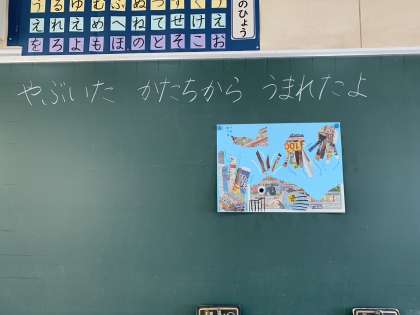 のひょう
う る ゆ む ふ ぬ つ す く う
え れ え め へ ね て せ け え
を ろ よ も ほ の と そ こ お
やぶいた かたちから うまれたよ